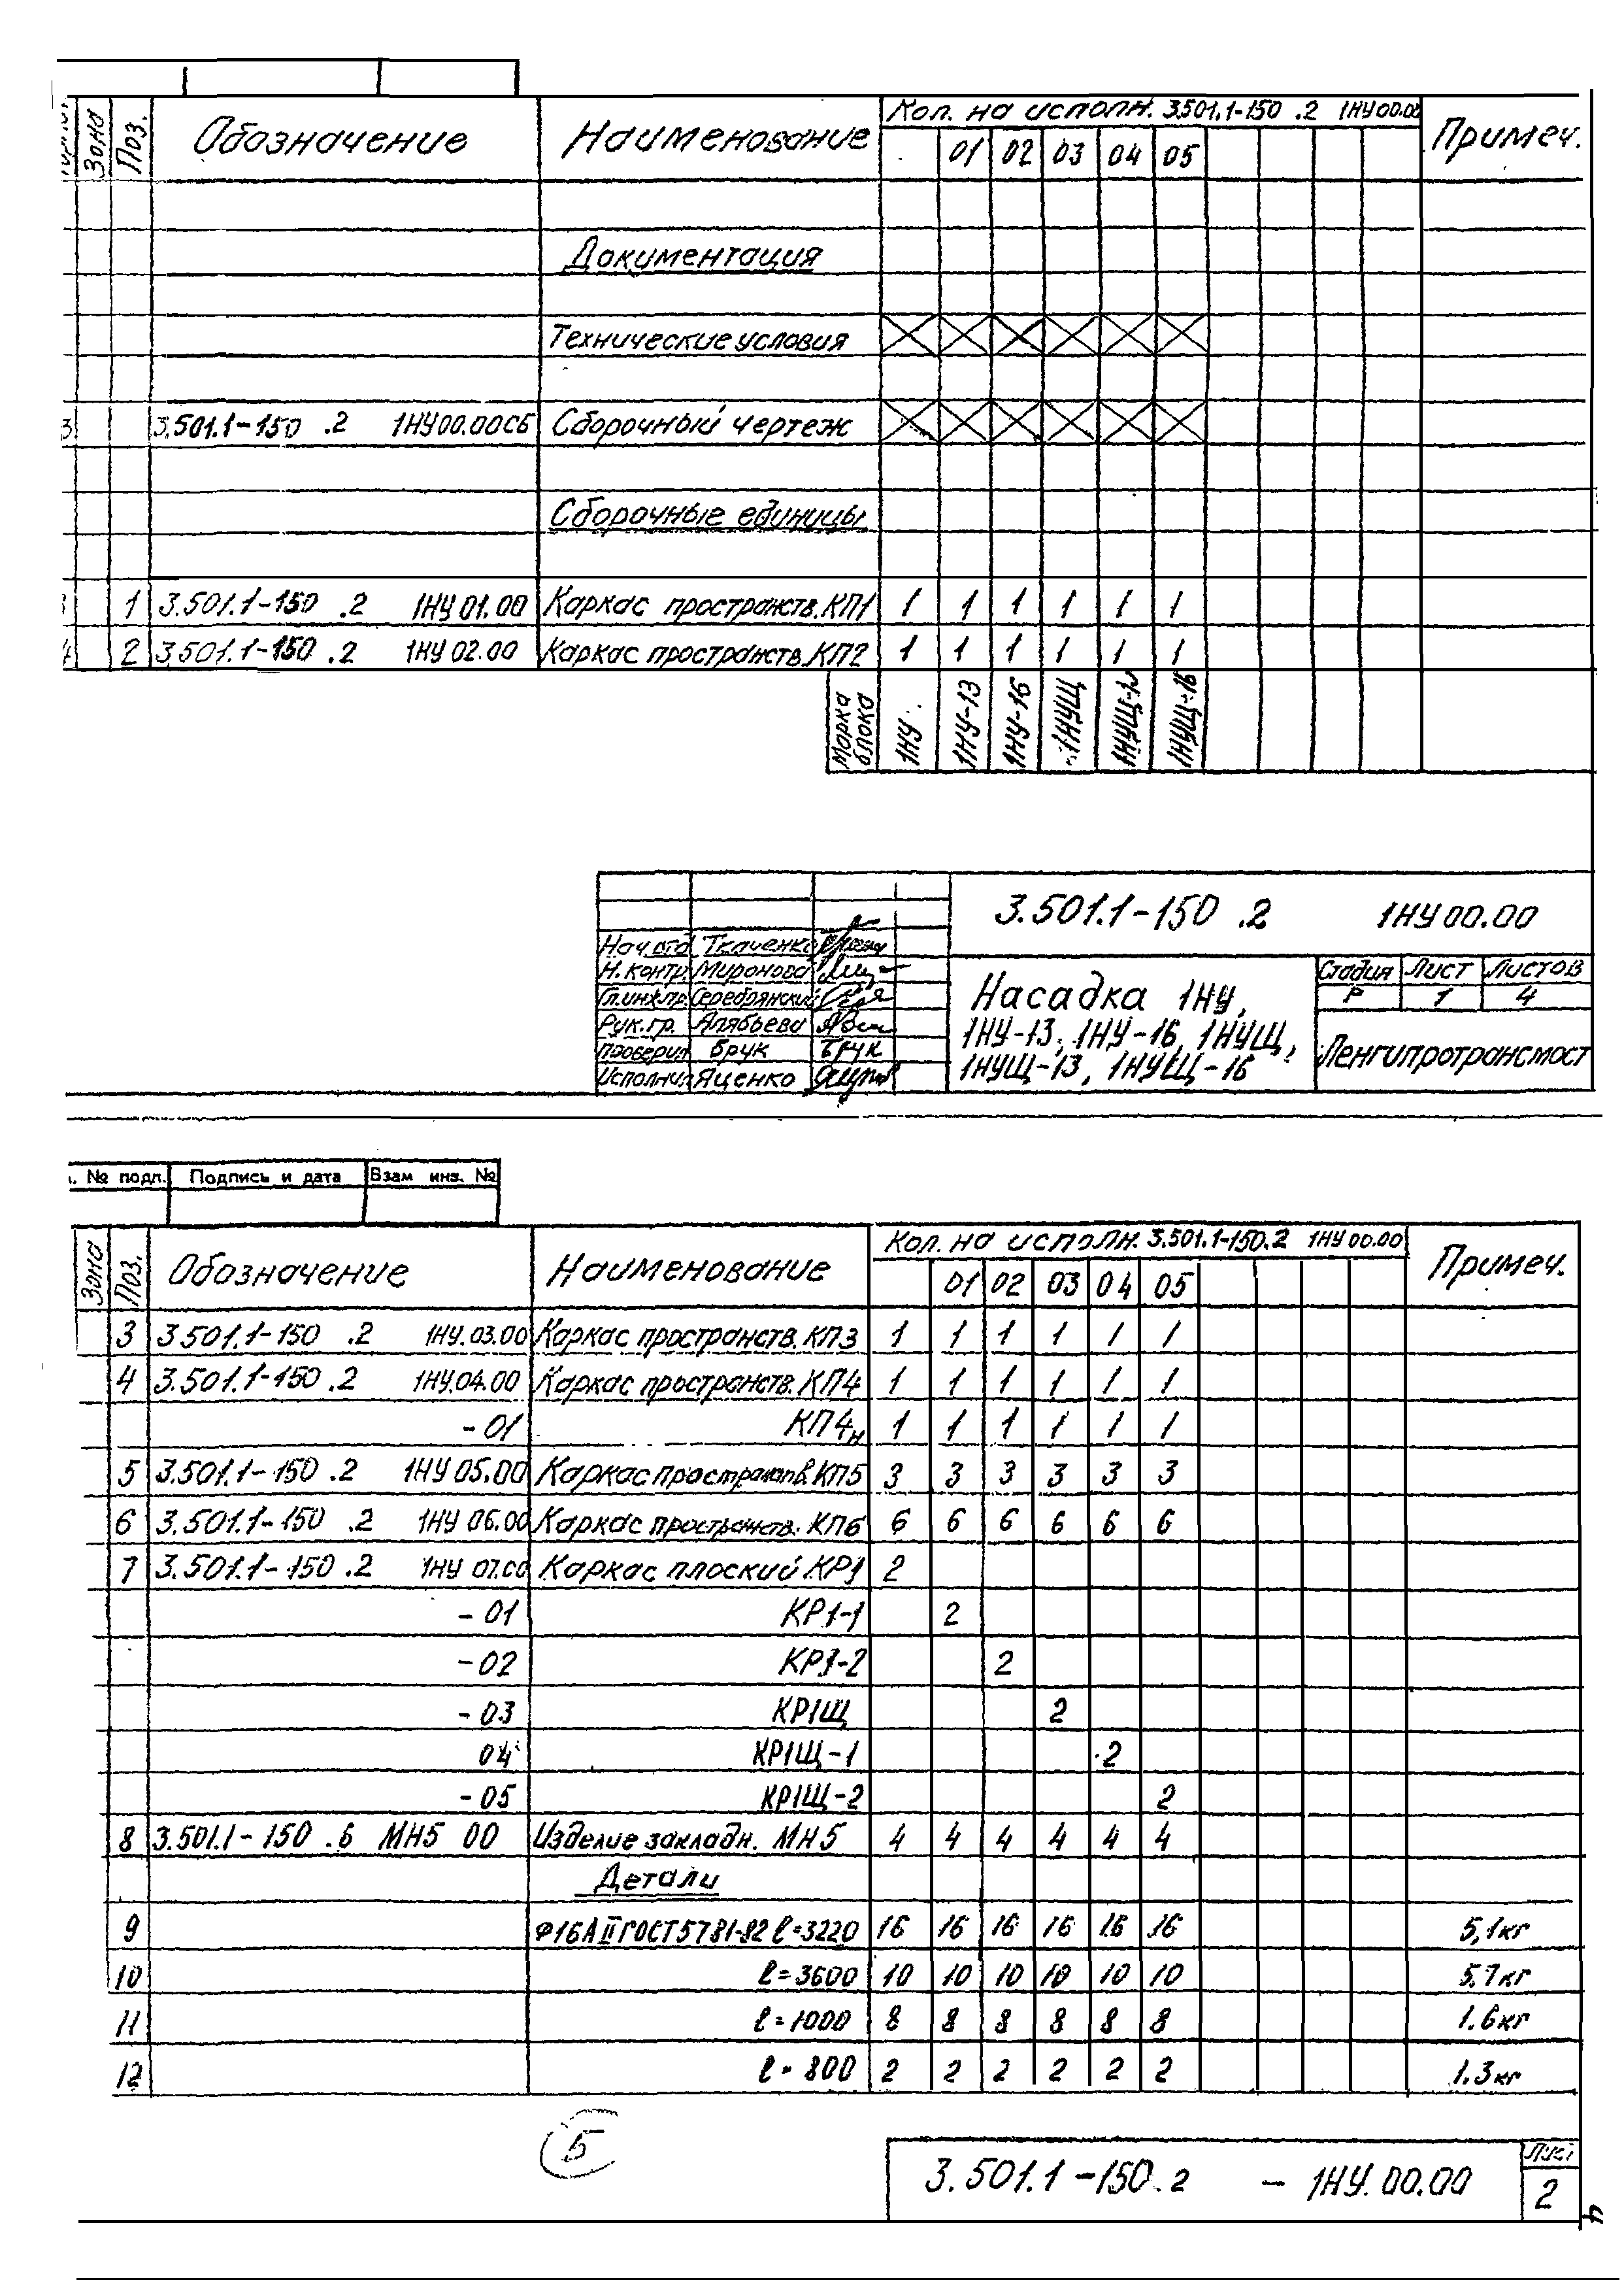 Зона Поз. Обозначение Наименование Кол. на исполн. 3.501.1-150 .2 1НУ00.00 Примеч.
01 02 03 04 05
Документация
Технические условия
3.501.1-150 .2 1НУ00.00СБ Сборочный чертеж
Сборочные единицы
1 3.501.1-150 .2 1НУ 01.00 Каркас пространств. КП1 1 1 1 1 1 1
2 3.501.1-150 .2 1НУ 02.00 Каркас пространств. КП2 1 1 1 1 1 1
Марка блока 1НУ 1НУ-13 1НУ-16 1НУЩ 1НУЩ-16
3.501.1-150 .2 1НУ 00.00
Нач.отд Ткаченко
Н. контр. Миронова
Гл.инж.пр. Серебрянский
Рук. гр. Алябьева
Проверил Брук
Исполнил Яценко
Насадка 1НУ,
1НУ-13, 1НУ-16, 1НУЩ,
1НУЩ-13, 1НУЩ-16
Стадия Лист Листов
Р 1 4
Ленгипротрансмост
. № подл. Подпись и дата Взам инв. №
Зона Поз. Обозначение Наименование Кол. на исполн. 3.501.1-150.2 1НУ 00.00 Примеч.
01 02 03 04 05
3 3.501.1-150 .2 1НУ.03.00 Каркас пространств. КП3 1 1 1 1 1 1
4 3.501.1-150 .2 1НУ.04.00 Каркас пространств. КП4 1 1 1 1 1 1
- 01 КП4н 1 1 1 1 1 1
5 3.501.1-150 .2 1НУ 05.00 Каркас пространств. КП5 3 3 3 3 3 3
6 3.501.1-150 .2 1НУ 06.00 Каркас пространств. КП6 6 6 6 6 6 6
7 3.501.1-150 .2 1НУ 07.00 Каркас плоский КР1 2
- 01 КР1-1 2
- 02 КР1-2 2
- 03 КР1Щ 2
04 КР1Щ-1 2
- 05 КР1Щ-2 2
8 3.501.1-150 .6 МН5 00 Изделие закладн. МН5 4 4 4 4 4 4
Детали
9 Ф16АII ГОСТ5781-82 ℓ=3220 16 16 16 16 16 16 5,1кг
10 ℓ=3600 10 10 10 10 10 10 5.7кг
11 ℓ=1000 8 8 8 8 8 8 1.6кг
12 ℓ=800 2 2 2 2 2 2 1.3кг
5
3.501.1-150.2 - 1НУ.00.00
Лист
2
4